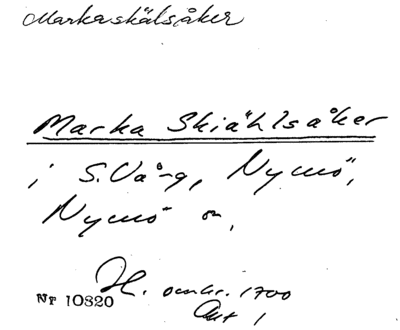 Markaskälsåker
Marka Skiählsåker
i S. Vång, Nymö,
Nymö sn,
H. omkr. 1700
Akt 1
Nr 10820